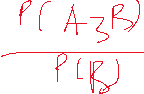 P( A 3 B)
P(B)